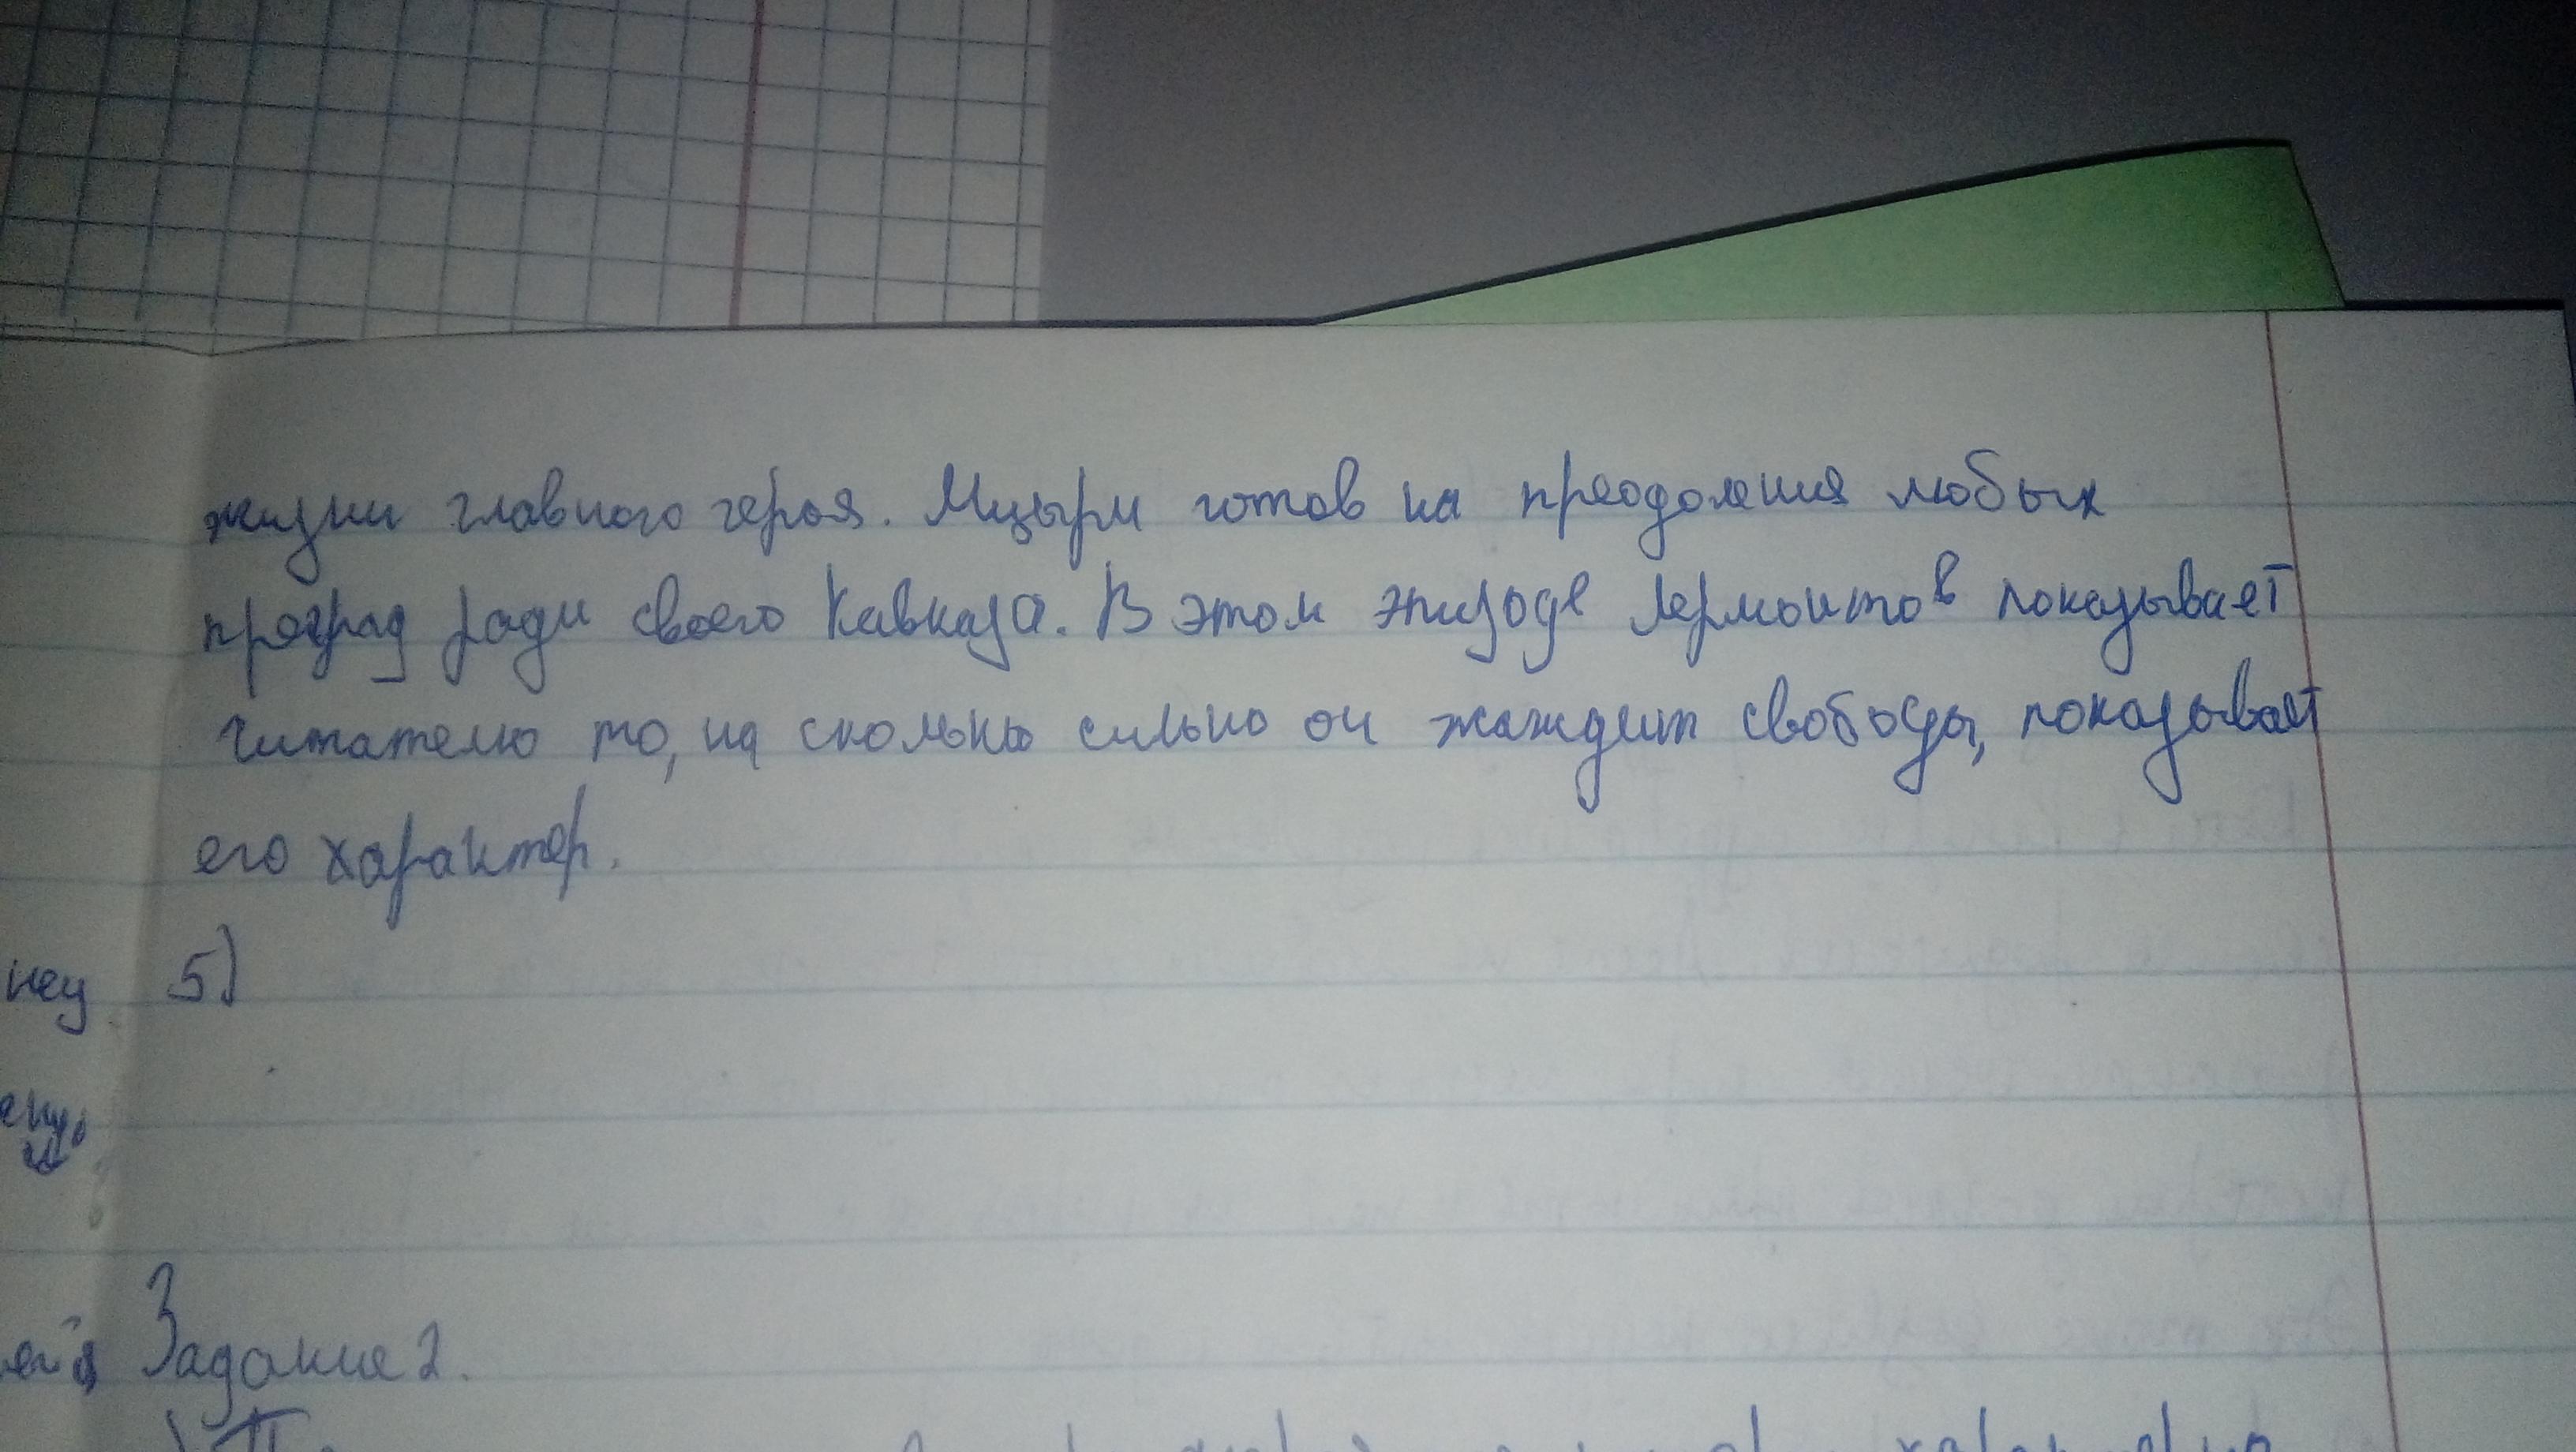 жизни главного героя. Мцыри готов на преодоления любых
преград ради своего Кавказа. В этом эпизоде Лермонтов показывает
читателю то, на сколько сильно он жаждит свободы, показывает
его характер.
5)
Задание 2.